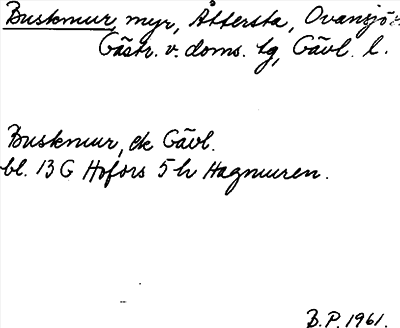 Buskmur, myr, Åttersta, Ovansjö
Gästr. v. doms. lg, Gävl. l.
Buskmur, ek Gävl.
bl. 13 G Hofors 5 h Hagmuren.
B.P. 1961.